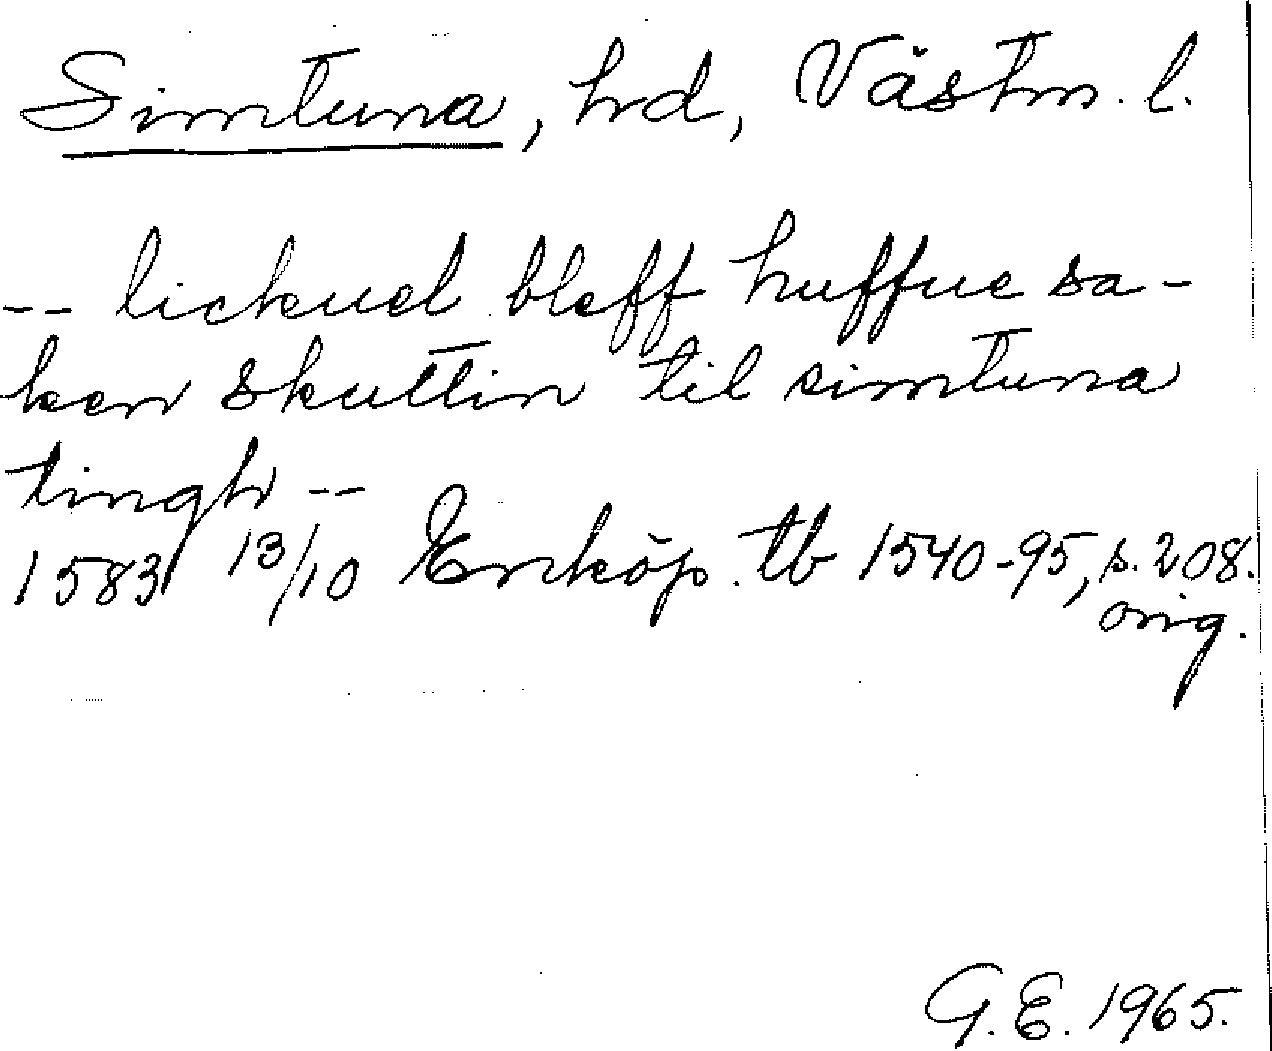 Simtuna, hd, Västm. l.
-- lickuel bleff huffue sa-
ken skuttin til simtuna
tingh --
1583 13/10 Enköp. tb 1540-95, s. 208.
orig.
G. E. 1965.